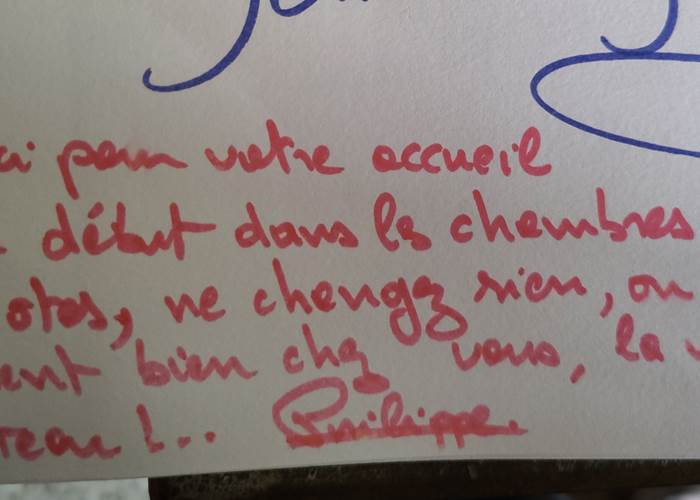 ci pour votre accueil
début dans les chambres
otes, ne changez rien, on
ent bien chez vous, la
reau !.. Philippe.